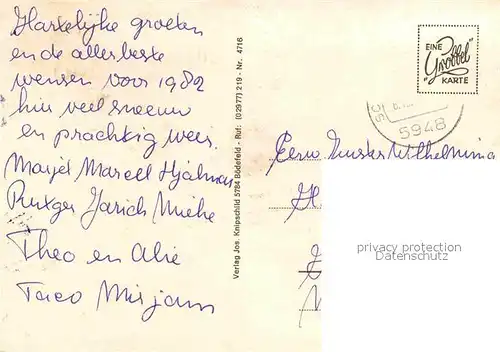 Hartelijke groeten
en de allerbeste
wensen voor 1982
hier veel sneeuw
en prachtig weer.
Marjet Marcell Hjalmar
Rutger Jarich Mieke
Theo en Alie
Taco Mirjam
Verlag Jos. Knipschild 5784 Bödefeld - Ruf: (02977) 219 - Nr. 4716
EINE
Grobbel
KARTE
5948
Wilhelmina
privacy protection
Ansichtskartenversand.com